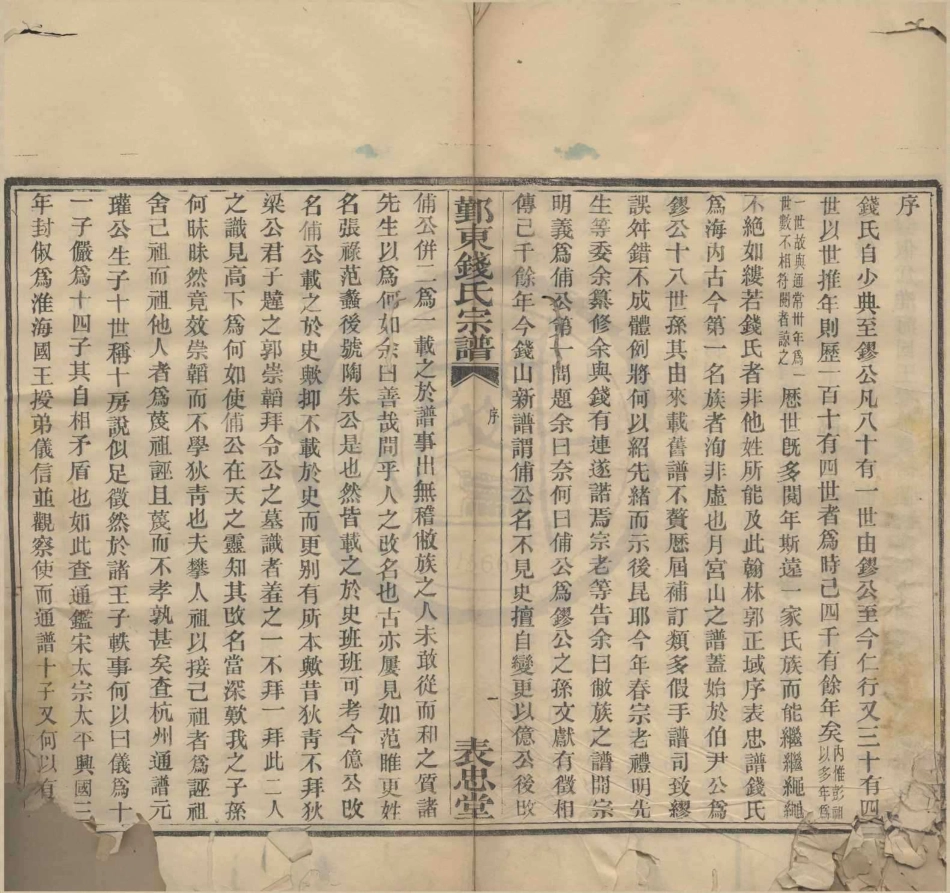 序
錢氏自少典至鏐公凡八十有一世由鏐公至今仁行又三十有四
世以世推年則歷一百十有四世者爲時已四千有餘年矣內惟彭祖以多年爲
一世故與通常卅年爲一世數不相符閱者諒之歷世旣多閱年斯遠一家氏族而能繼繼繩繩
不絶如縷若錢氏者非他姓所能及此翰林郭正域序表忠譜錢氏
爲海內古今第一名族者洵非虛也月宮山之譜蓋始於伯尹公爲
鏐公十八世孫其由來載舊譜不贅歷屆補訂類多假手譜司致繆
誤舛錯不成體例將何以紹先緒而示後昆耶今年春宗老禮明先
生等委余纂修余與錢有連遂諾焉宗老等告余曰敝族之譜開宗
明義爲俌公第一問題余曰奈何曰俌公爲鏐公之孫文獻有徵相
傳已千餘年今錢山新譜謂俌公名不見史擅自變更以億公後改
鄞東錢氏宗譜
序
一
表忠堂
俌公併二爲一載之於譜事出無稽敝族之人未敢從而和之質諸
先生以爲何如余曰善哉問乎人之改名也古亦屢見如范睢更姓
名張祿范蠡後號陶朱公是也然皆載之於史班班可考今億公改
名俌公載之於史歟抑不載於史而更別有所本歟昔狄青不拜狄
梁公君子韙之郭崇韜拜令公之墓識者羞之一不拜一拜此二人
之識見高下爲何如使俌公在天之靈知其改名當深歎我之子孫
何昧昧然竟效崇韜而不學狄青也夫攀人祖以接己祖者爲誣祖
舍己祖而祖他人者爲蔑祖誣且蔑而不孝孰甚矣查杭州通譜元
瓘公生子十世稱十房說似足徵然於諸王子軼事何以曰儀爲十
一子儼爲十四子其自相矛盾也如此查通鑑宋太宗太平興國三
年封俶爲淮海國王授弟儀信並觀察使而通譜十子又何以有